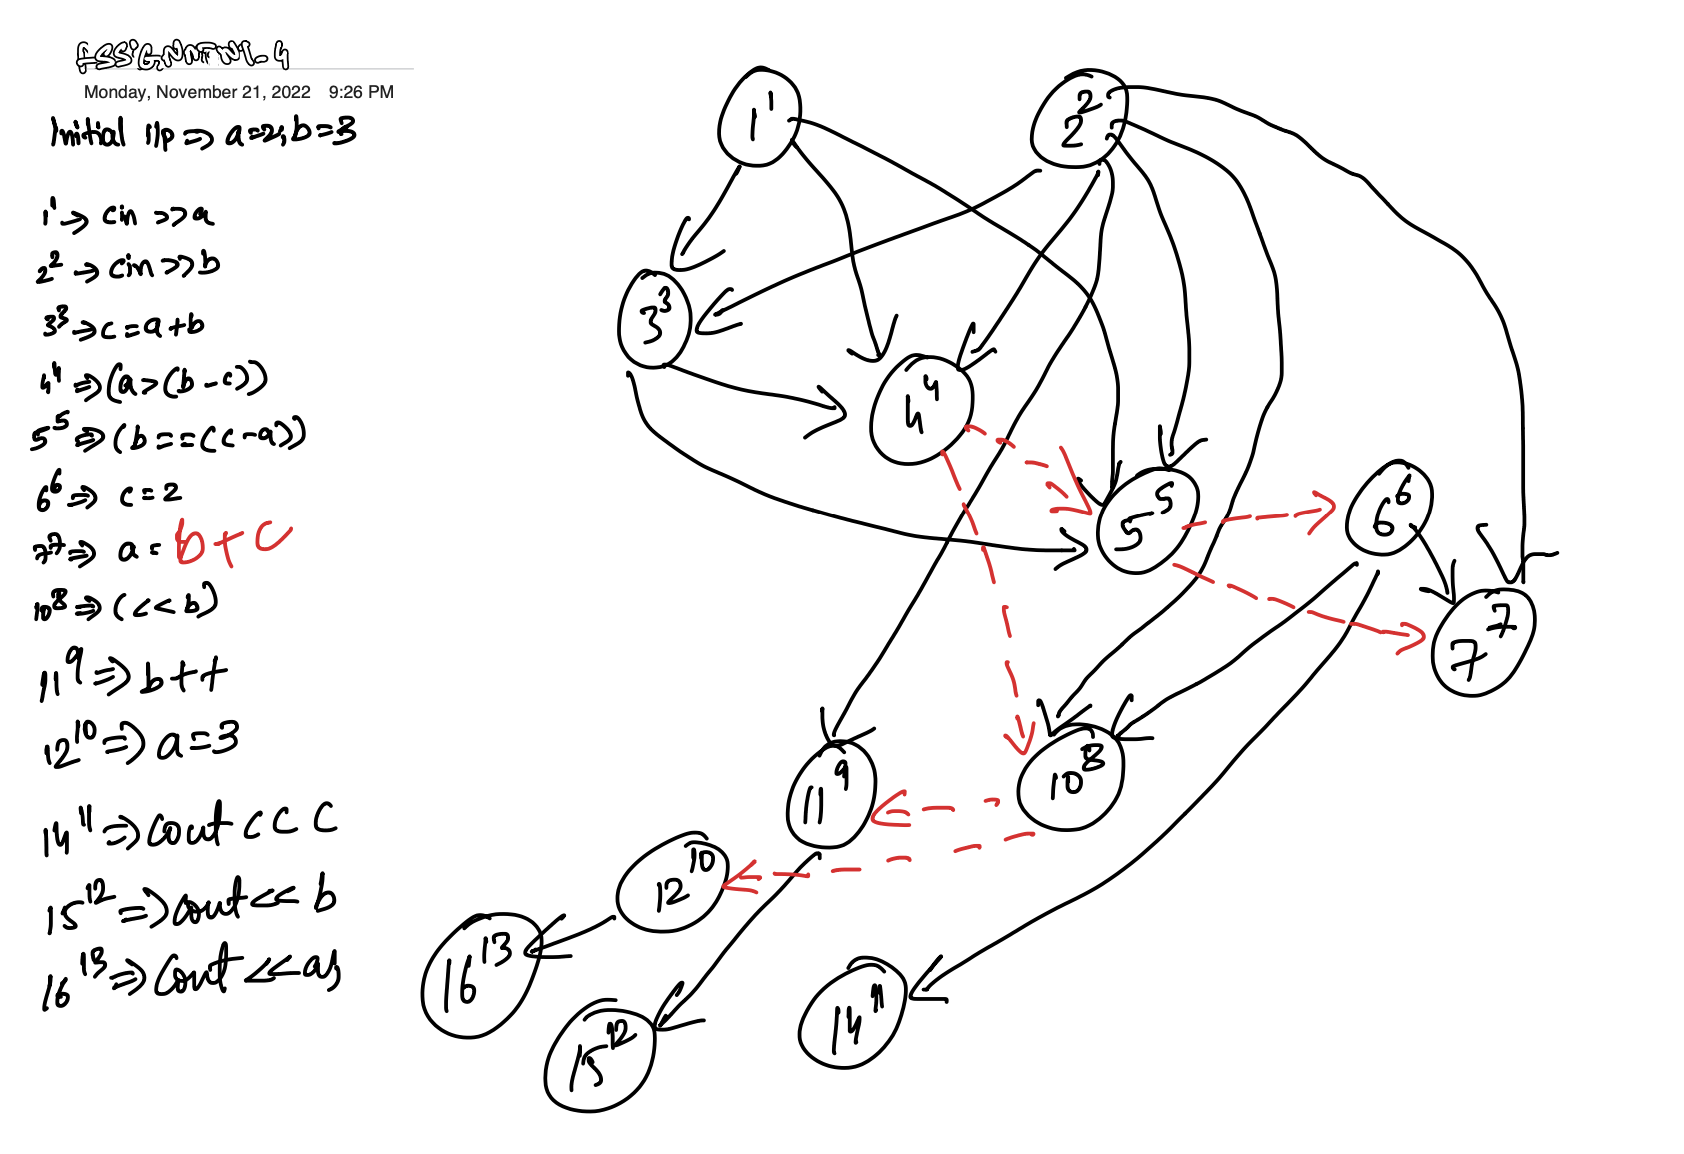 ASSIGNMENT-4
Monday, November 21, 2022 9:26 PM
Initial I/p => a=2, b=3
1¹ → cin >> a
2² → cin >> b
3³ → c = a+b
4⁴ => (a > (b - c))
5⁵ => (b == (c - a))
6⁶ => c = 2
7⁷ => a = b + c
10⁸ => (c < b)
11⁹ => b++
12¹⁰ => a = 3
14¹¹ => cout << c
15¹² => cout << b
16¹³ => cout << a;
1¹
2²
3³
4⁴
5⁵
6⁶
7⁷
10⁸
11⁹
12¹⁰
16¹³
14¹¹
15¹²